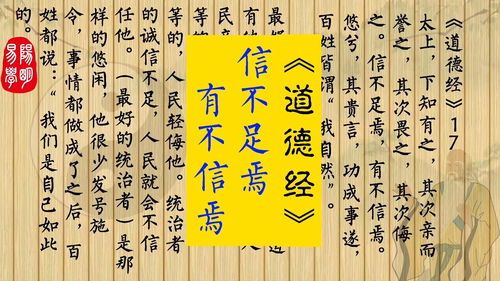 《道德经》17
太上,下知有之,其次亲而
誉之,其次畏之,其次侮
之。信不足焉,有不信焉。
悠兮,其贵言,功成事遂,
百姓皆谓“我自然”。
《道德经》
信不足焉
有不信焉
最好
等的,人民轻侮他。统治者
的诚信不足,人民就会不信
任他。(最好的统治者)是那
样的悠闲,他很少发号施
令,事情都做成了之后,百
姓都说:“我们是自己如此
的。
陽明
易學